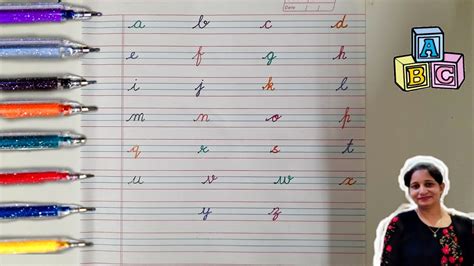 Date
a b c d
e f g h
i j k l
m n o p
q r s t
u v w x
y z
A
B C